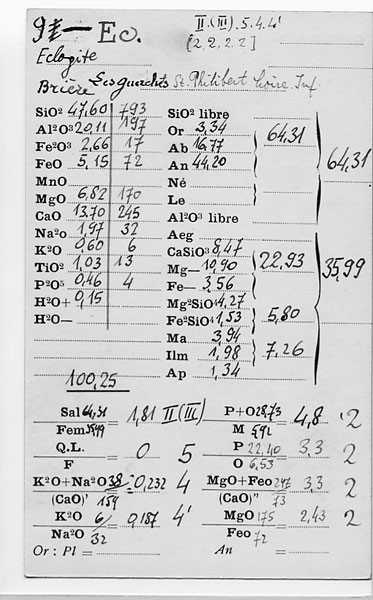 91 — Ec. II.(III).5.4.4'
[2 2 2 2]
Eclogite
Brière Les Guerches St. Philibert Loire Inf
SiO² 47,60 793 SiO² libre
Al²O³ 20,11 197 Or 3,34
Fe²O³ 2,66 17 Ab 16,77 64,31
FeO 5,15 72 An 44,20
MnO Né 64,31
MgO 6,82 170 Le
CaO 13,70 245 Al²O³ libre
Na²O 1,97 32 Aeg
K²O 0,60 6 CaSiO³ 8,47
TiO² 1,03 13 Mg— 10,90 22,93 35,99
P²O⁵ 0,46 4 Fe— 3,56
H²O+ 0,15 Mg²SiO⁴ 4,27
H²O— Fe²SiO⁴ 1,53 5,80
Ma 3,94
Ilm 1,98 7,26
100,25 Ap 1,34
Sal 64,31 = 1,81 II(III) P+O 28,73 4,8 2
Fem 35,99 M 5,92
Q.L. = 0 5 P 22,40 3,3 2
F O 6,53
K²O+Na²O 38 = 0,232 4 MgO+Feo 247 3,3 2
(CaO)' 159 (CaO)" 73
K²O 6 = 0,187 4' MgO 175 2,43 2
Na²O 32 Feo 72
Or : Pl = An =